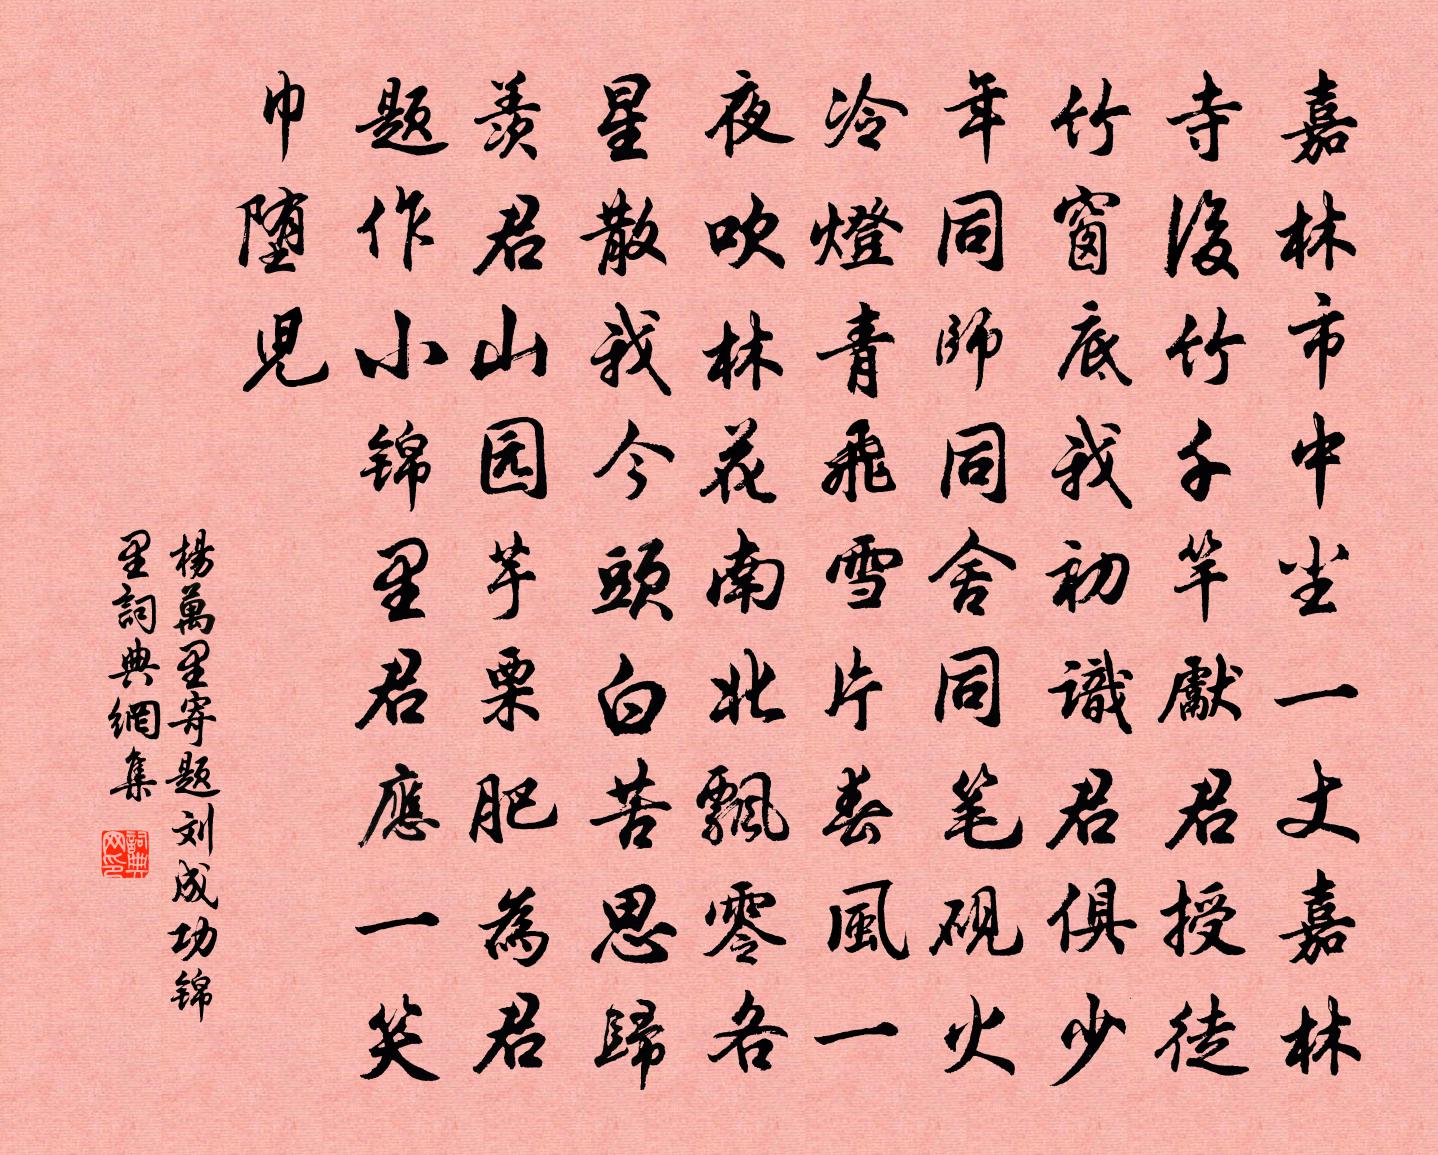 嘉林市中尘一丈嘉林
寺後竹千竿獻君授徒
竹窗底我初識君俱少
年同師同舍同笔砚火
冷燈青飛雪片春風一
夜吹林花南北飄零各
星散我今頭白苦思歸
羡君山园芋栗肥為君
题作小锦里君應一笑
巾堕児
楊萬里寄题刘成功锦
里詞典網集
詞典网印